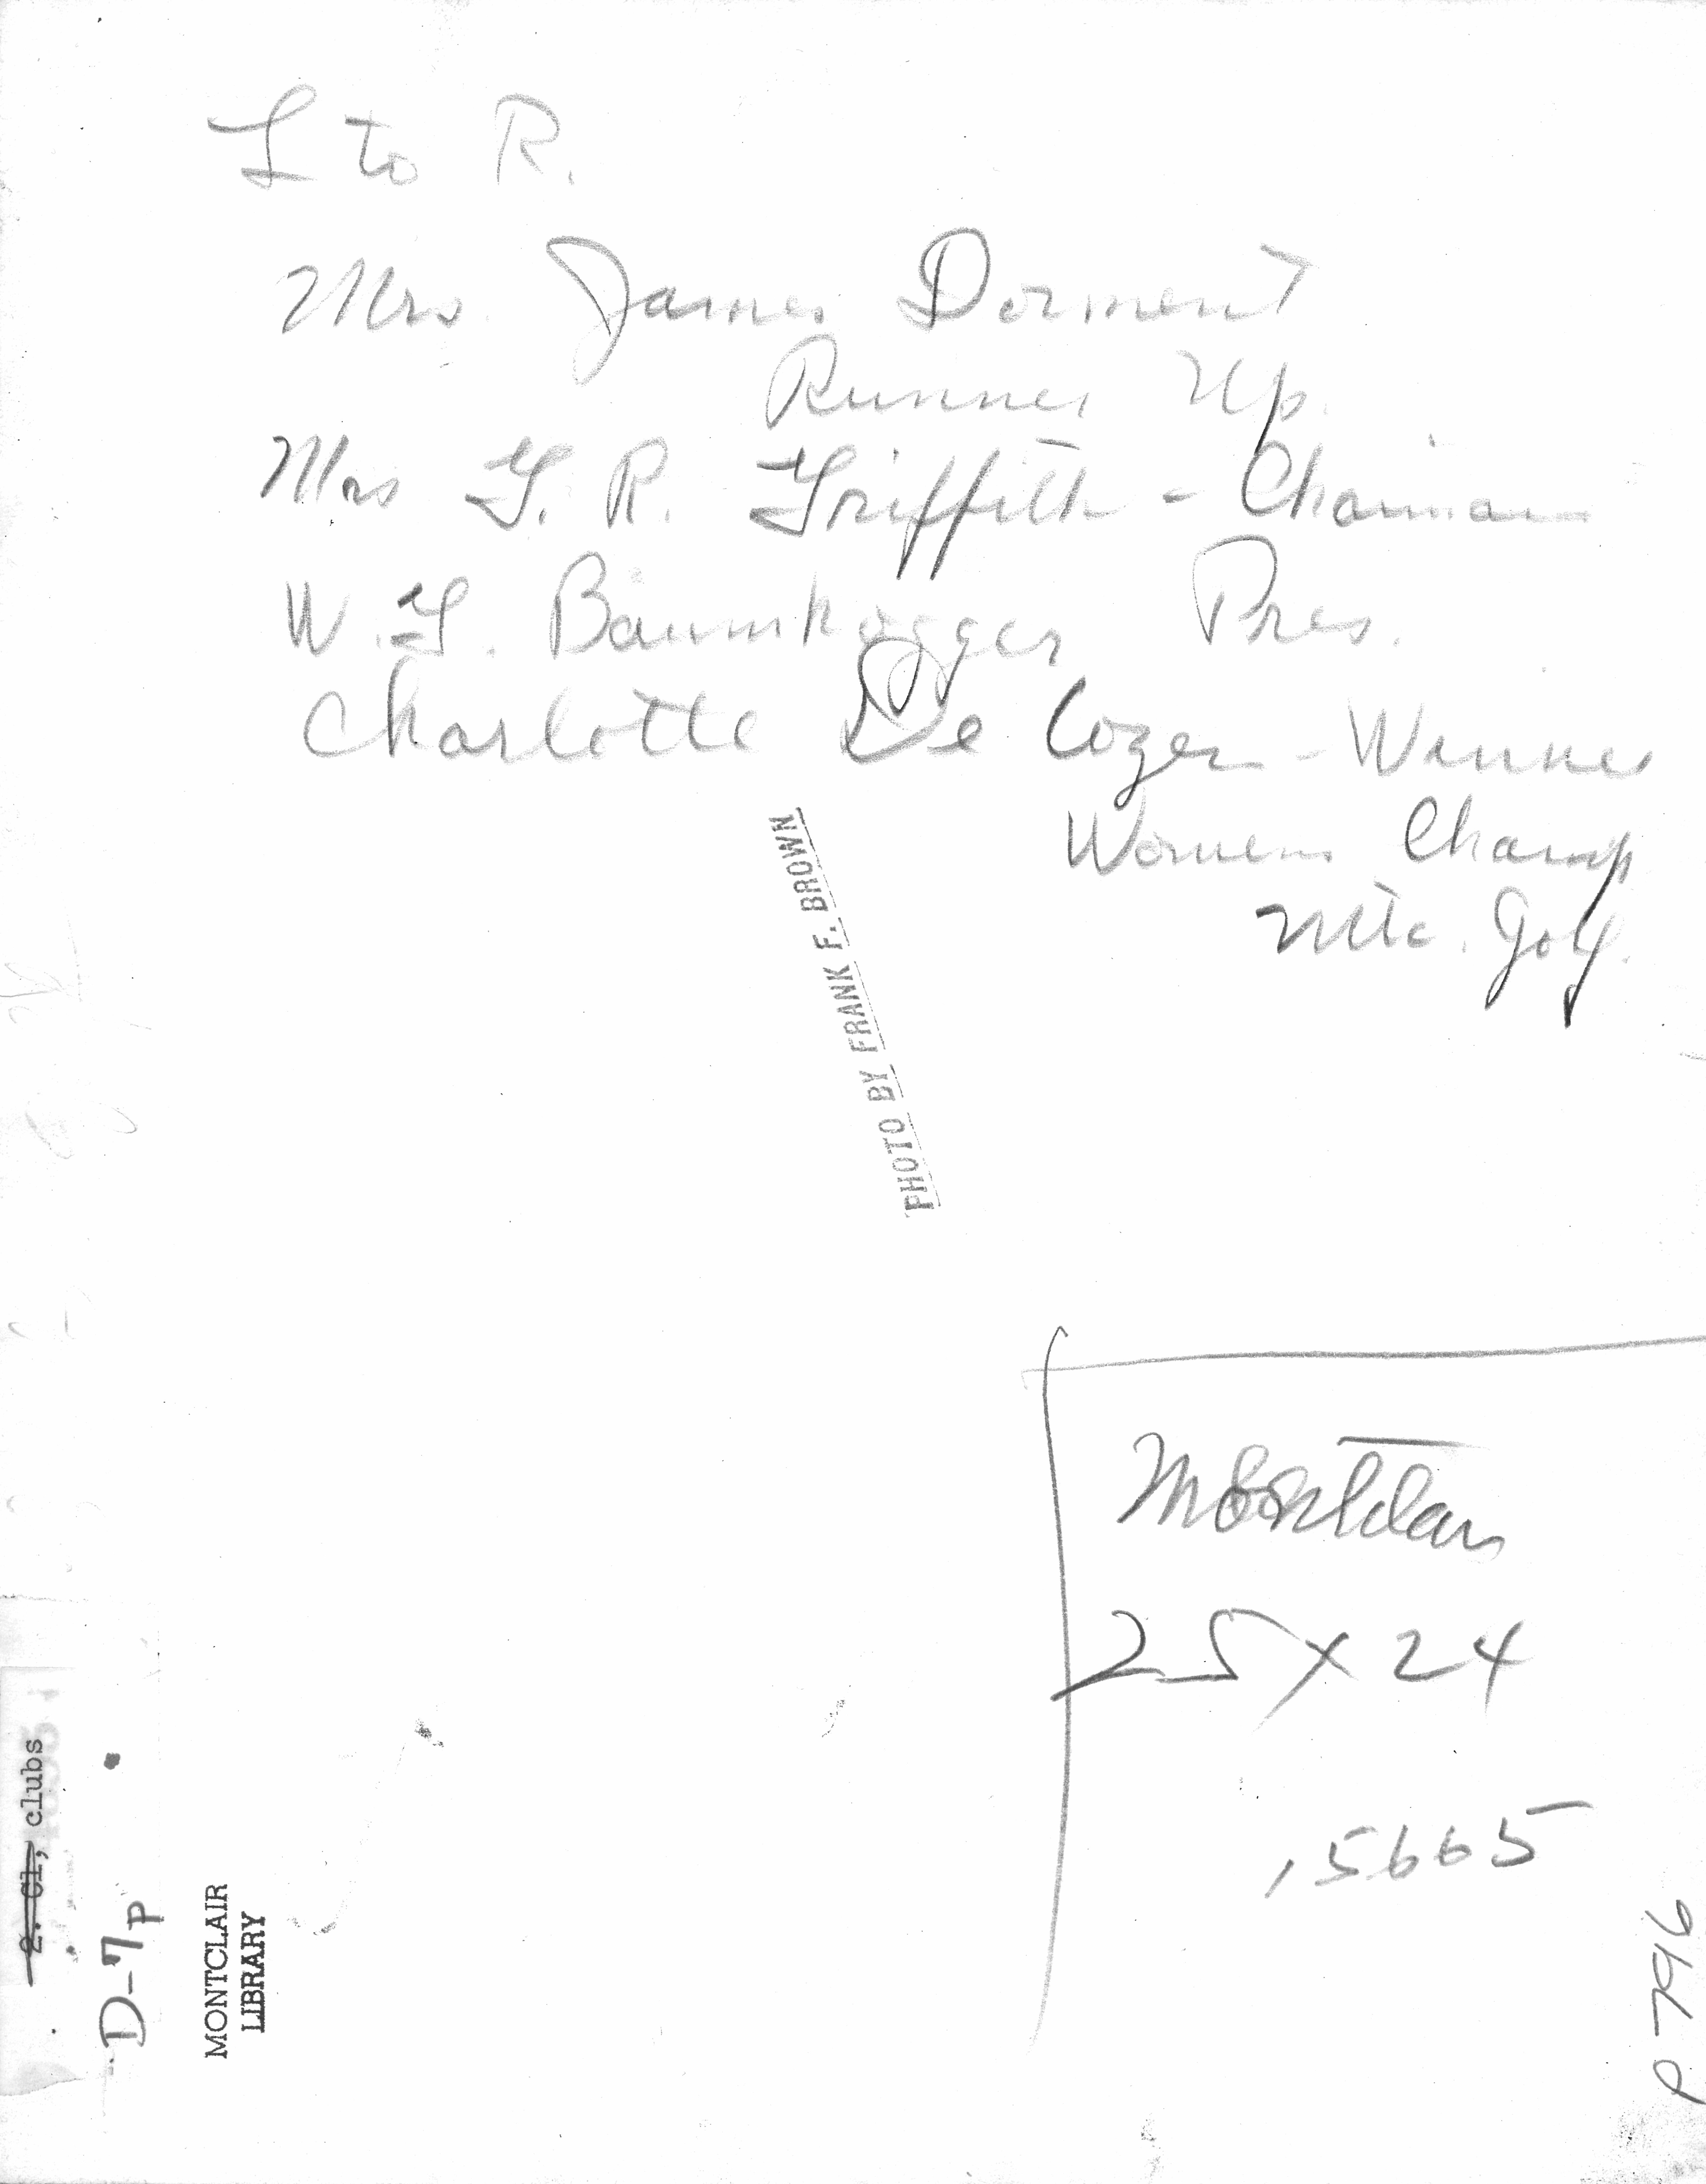 L to R.
Mrs. James Dorment
Runner Up.
Mrs G. R. Griffith - Chairman
W. G. Baumhogger Pres.
Charlotte De Cozen - Winner
Womens Champ
Mtc. Golf.
PHOTO BY FRANK F. BROWN
Montclair
25 x 24
,5665
P 796
2. Cl, clubs
D-7p
MONTCLAIR
LIBRARY